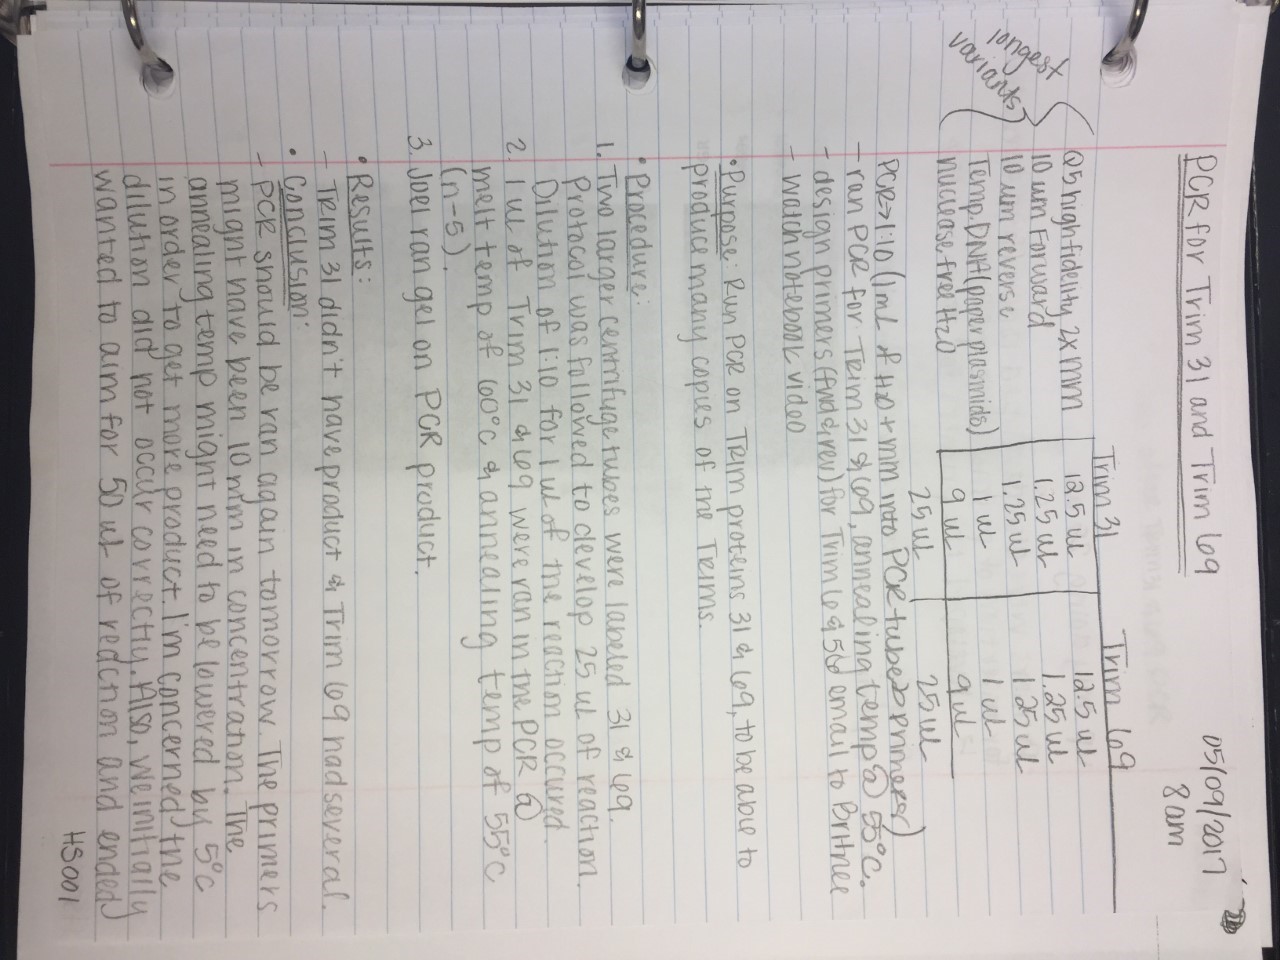 05/09/2017
8am
PCR for Trim 31 and Trim 69
Trim 31 Trim 69
Q5 high fidelity 2x MM 12.5 ul 12.5 ul
10 um Forward 1.25 ul 1.25 ul
10 um reverse 1.25 ul 1.25 ul
Temp. DNA (paper plasmids) 1 ul 1 ul
nuclease free H20 9 ul 9 ul
25 ul 25 ul
longest
variants
PCR→1:10 (1mL of H20 + mm into PCR tube primers)
- ran PCR for Trim 31 & 69, annealing temp @ 55°C.
- design primers (fnd & rev) for Trim 6 & 56 email to Britnee
- watch notebook video
• Purpose: Run PCR on Trim proteins 31 & 69, to be able to
produce many copies of the Trims.
• Procedure:
1. Two larger centrifuge tubes were labeled 31 & 69.
Protocol was followed to develop 25 ul of reaction.
Dilution of 1:10 for 1 ul of the reaction occured.
2. 1 ul of Trim 31 & 69 were ran in the PCR @
melt temp of 60°C & annealing temp of 55°C
(n-5).
3. Joel ran gel on PCR product.
• Results:
- Trim 31 didn't have product & Trim 69 had several.
• Conclusion:
- PCR should be ran again tomorrow. The primers
might have been 10 mm in concentration. The
annealing temp might need to be lowered by 5°C
in order to get more product. I'm concerned the
dilution did not occur correctly. Also, we initially
wanted to aim for 50 ul of reaction and ended
HS001